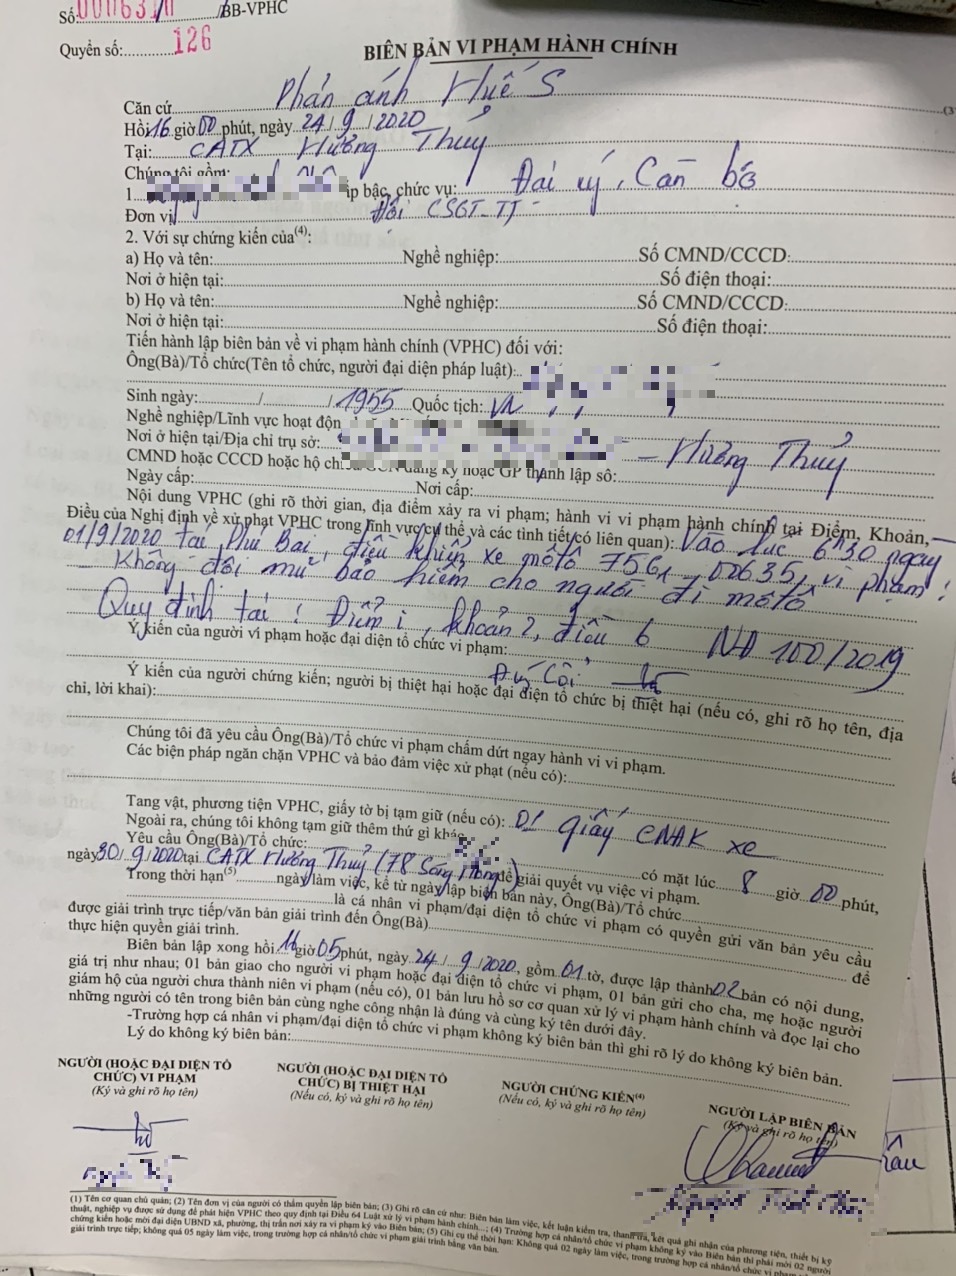 Số: 000631 /BB-VPHC
Quyển số: 126
BIÊN BẢN VI PHẠM HÀNH CHÍNH
Căn cứ Phản ánh Huế S (3
Hồi 16 giờ 00 phút, ngày 24/9/2020
Tại: CATX Hương Thủy
Chúng tôi gồm:
1. ấp bậc, chức vụ: Đại úy, Cán bộ
Đơn vị Đội CSGT-TT
2. Với sự chứng kiến của(4):
a) Họ và tên: Nghề nghiệp: Số CMND/CCCD:
Nơi ở hiện tại: Số điện thoại:
b) Họ và tên: Nghề nghiệp: Số CMND/CCCD:
Nơi ở hiện tại: Số điện thoại:
Tiến hành lập biên bản về vi phạm hành chính (VPHC) đối với:
Ông(Bà)/Tổ chức(Tên tổ chức, người đại diện pháp luật):
Sinh ngày: / / 1955 Quốc tịch: VN
Nghề nghiệp/Lĩnh vực hoạt độn
Nơi ở hiện tại/Địa chỉ trụ sở: - Hương Thủy
CMND hoặc CCCD hoặc hộ chi đăng ký hoặc GP thành lập số:
Ngày cấp: Nơi cấp:
Nội dung VPHC (ghi rõ thời gian, địa điểm xảy ra vi phạm; hành vi vi phạm hành chính tại Điểm, Khoản,
Điều của Nghị định về xử phạt VPHC trong lĩnh vực cụ thể và các tình tiết có liên quan): Vào lúc 6h30 ngày
01/9/2020 tại Phú Bài, điều khiển xe môtô 75G1-00635, vi phạm:
- Không đội mũ bảo hiểm cho người đi môtô
Quy định tại: Điểm i, khoản 2, điều 6 NĐ 100/2019
Ý kiến của người vi phạm hoặc đại diện tổ chức vi phạm:
Ý kiến của người chứng kiến; người bị thiệt hại hoặc đại diện tổ chức bị thiệt hại (nếu có, ghi rõ họ tên, địa
chỉ, lời khai):
Chúng tôi đã yêu cầu Ông(Bà)/Tổ chức vi phạm chấm dứt ngay hành vi vi phạm.
Các biện pháp ngăn chặn VPHC và bảo đảm việc xử phạt (nếu có):
Tang vật, phương tiện VPHC, giấy tờ bị tạm giữ (nếu có): 01 giấy CNĐK xe
Ngoài ra, chúng tôi không tạm giữ thêm thứ gì khác.
Yêu cầu Ông(Bà)/Tổ chức: có mặt lúc 8 giờ 00 phút,
ngày 30/9/2020 tại CATX Hương Thủy (78 Sóng Hồng) để giải quyết vụ việc vi phạm.
Trong thời hạn(5) ngày làm việc, kể từ ngày lập biên bản này, Ông(Bà)/Tổ chức
là cá nhân vi phạm/đại diện tổ chức vi phạm có quyền gửi văn bản yêu cầu
được giải trình trực tiếp/văn bản giải trình đến Ông(Bà) để
thực hiện quyền giải trình.
Biên bản lập xong hồi 11 giờ 05 phút, ngày 24/9/2020, gồm 01 tờ, được lập thành 02 bản có nội dung,
giá trị như nhau; 01 bản giao cho người vi phạm hoặc đại diện tổ chức vi phạm, 01 bản gửi cho cha, mẹ hoặc người
giám hộ của người chưa thành niên vi phạm (nếu có), 01 bản lưu hồ sơ cơ quan xử lý vi phạm hành chính và đọc lại cho
những người có tên trong biên bản cùng nghe công nhận là đúng và cùng ký tên dưới đây.
-Trường hợp cá nhân vi phạm/đại diện tổ chức vi phạm không ký biên bản thì ghi rõ lý do không ký biên bản.
Lý do không ký biên bản:
NGƯỜI (HOẶC ĐẠI DIỆN TỔ
CHỨC) VI PHẠM
(Ký và ghi rõ họ tên)
NGƯỜI (HOẶC ĐẠI DIỆN TỔ
CHỨC) BỊ THIỆT HẠI
(Nếu có, ký và ghi rõ họ tên)
NGƯỜI CHỨNG KIẾN(4)
(Nếu có, ký và ghi rõ họ tên)
NGƯỜI LẬP BIÊN BẢN
(Ký và ghi rõ họ tên)
(1) Tên cơ quan chủ quản; (2) Tên đơn vị của người có thẩm quyền lập biên bản; (3) Ghi rõ căn cứ như: Biên bản làm việc, kết luận kiểm tra, thanh tra, kết quả ghi nhận của phương tiện, thiết bị kỹ
thuật, nghiệp vụ được sử dụng để phát hiện VPHC theo quy định tại Điều 64 Luật xử lý vi phạm hành chính...; (4) Trường hợp cá nhân/tổ chức vi phạm không ký vào Biên bản thì phải mời 02 người
chứng kiến hoặc mời đại diện UBND xã, phường, thị trấn nơi xảy ra vi phạm ký vào Biên bản; (5) Ghi cụ thể thời hạn: Không quá 02 ngày làm việc, trong trường hợp cá nhân/tổ chức vi phạm
giải trình trực tiếp; không quá 05 ngày làm việc, trong trường hợp cá nhân/tổ chức vi phạm giải trình bằng văn bản.